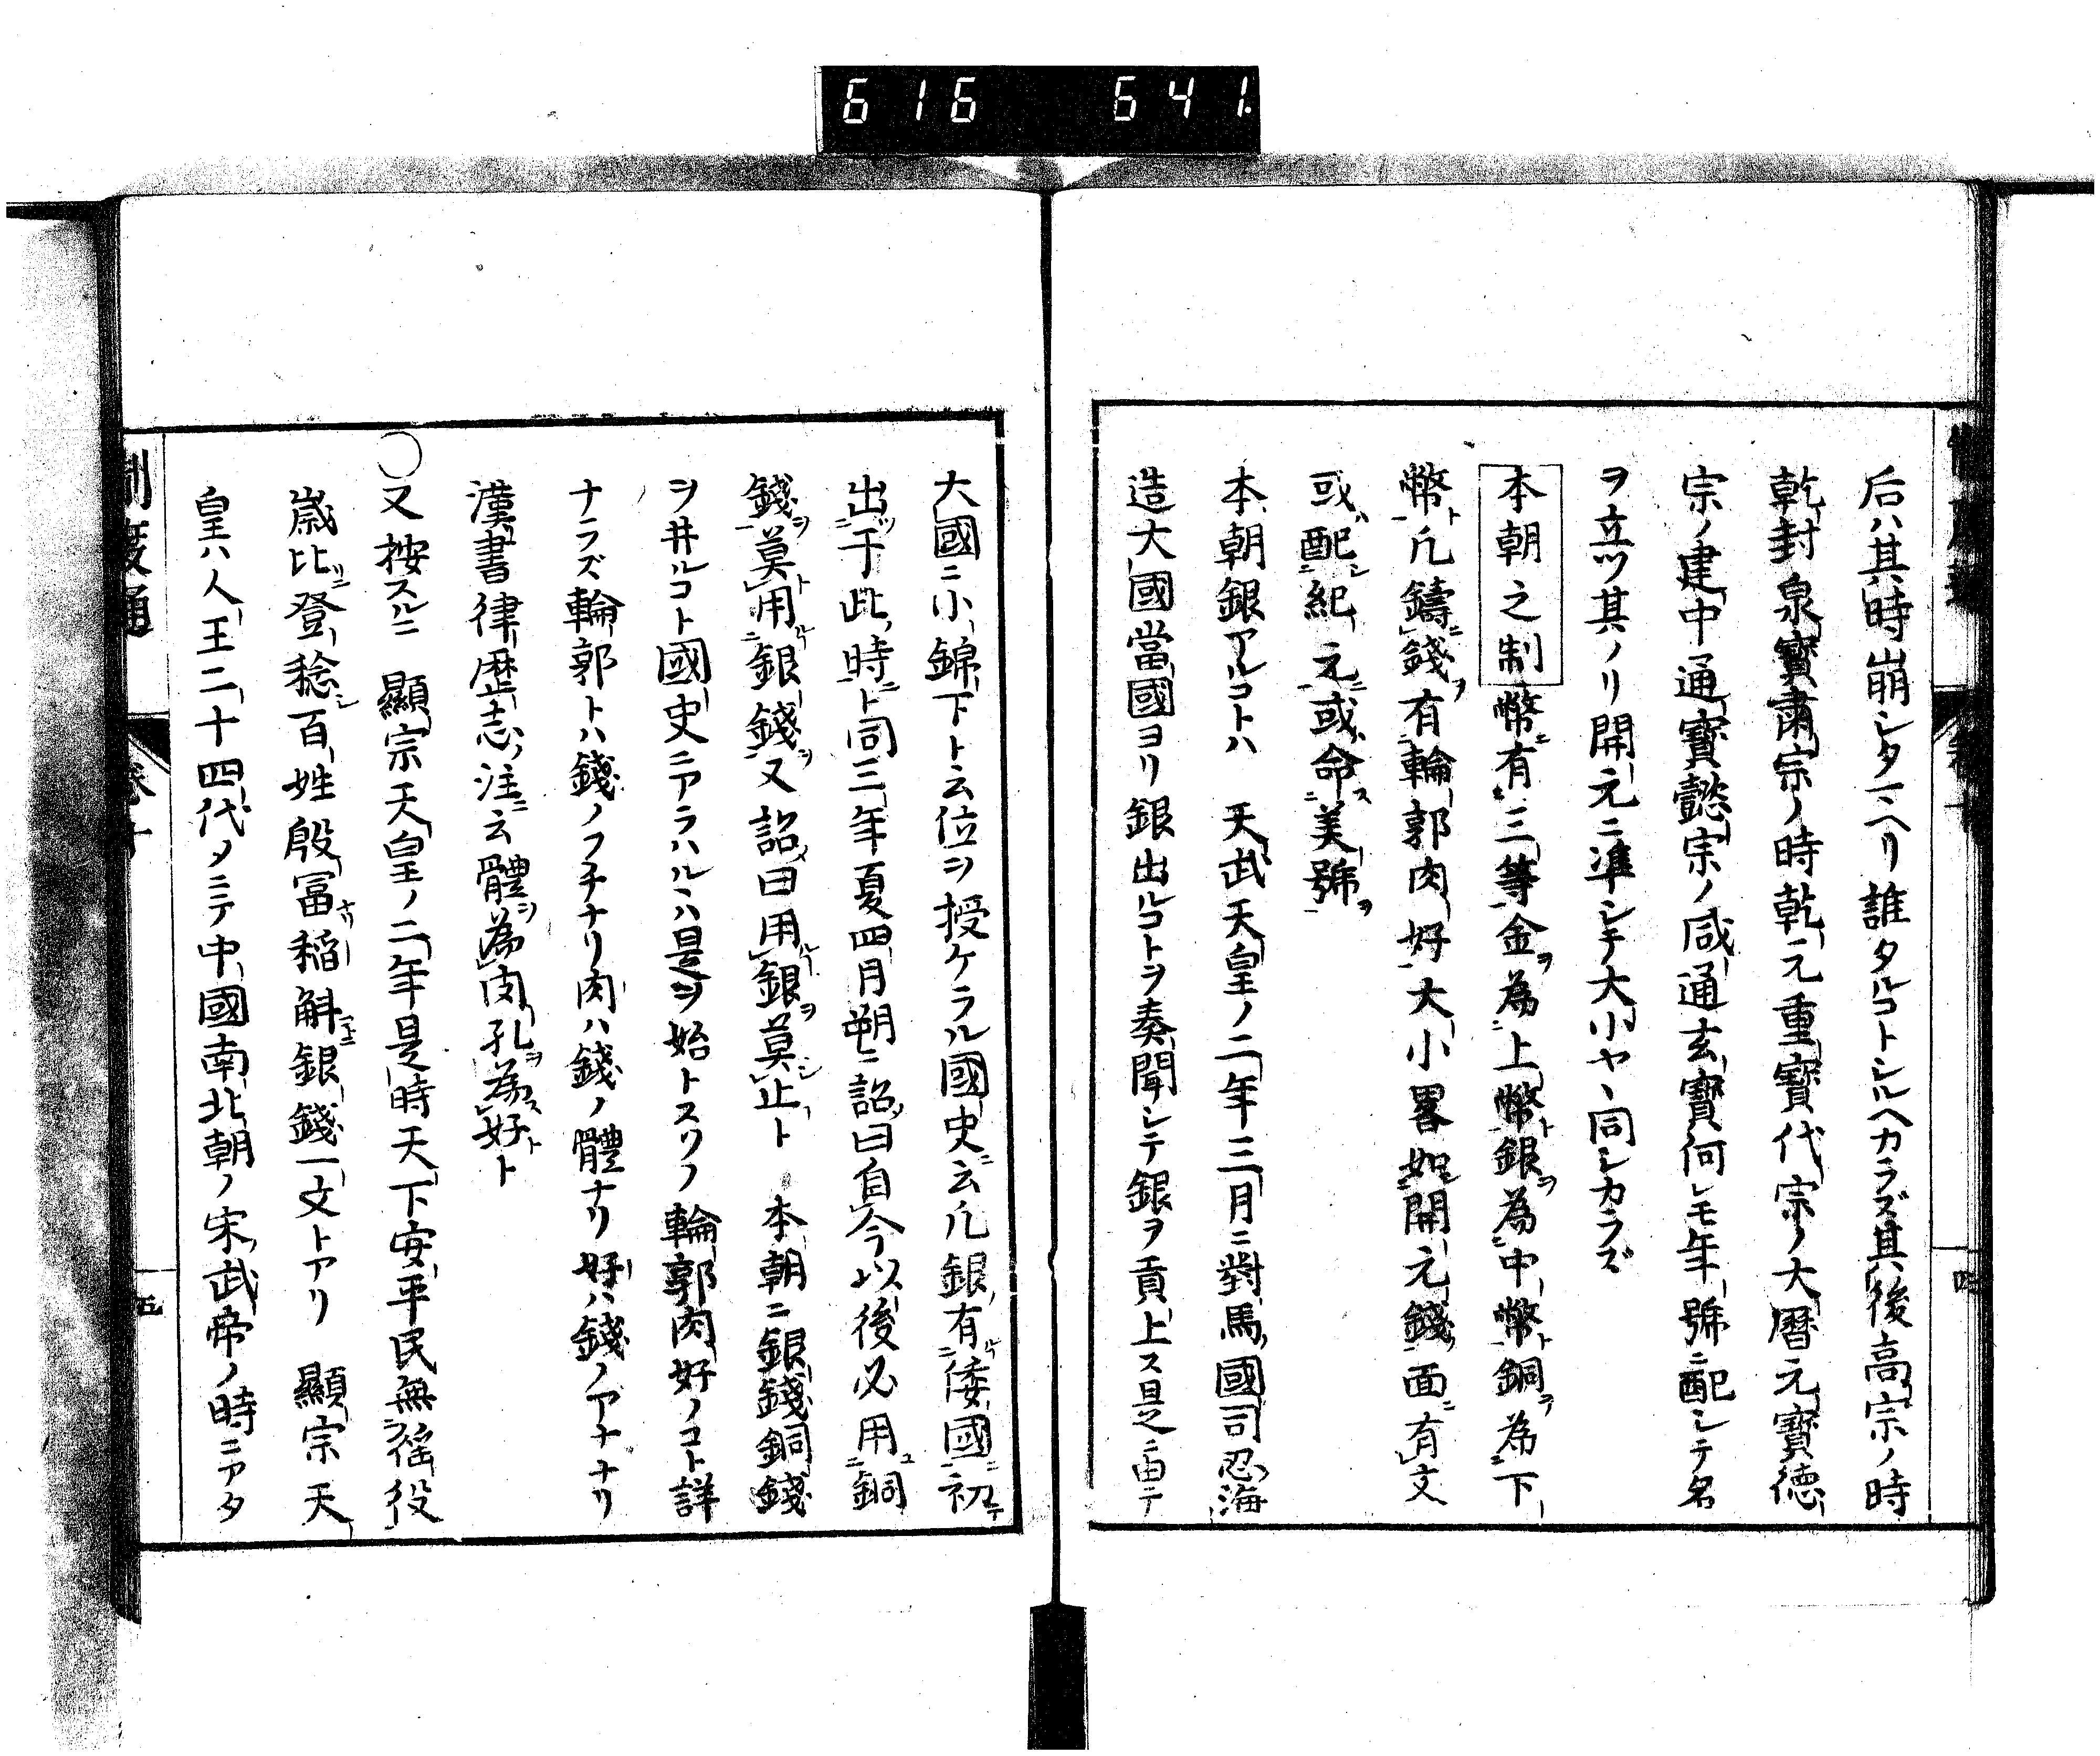 616 641.
后ハ其時崩シタマヘリ誰タルコトシルヘカラズ其後高宗ノ時
乾封泉寶肅宗ノ時乾元重寶代宗ノ大曆元寶德
宗ノ建中通寶懿宗ノ咸通玄寶何レモ年號ニ配シテ名
ヲ立ツ其ノリ開元ニ準シテ大小ヤヽ同シカラズ
本朝之制幣有三等金為上幣銀為中幣銅為下
幣凡鑄錢有輪郭肉好大小畧如開元錢面有文
或配紀元或命美號
本朝銀アルコトハ 天武天皇ノ二年三月ニ對馬國司忍海
造大國當國ヨリ銀出ルコトヲ奏聞シテ銀ヲ貢上ス是ニ由テ
四
大國ニ小錦下ト云位ヲ授ケラル國史云凡銀有倭國初
出于此時ト同三年夏四月朔ニ詔曰自今以後必用銅
錢莫用銀錢又詔曰用銀莫止ト 本朝ニ銀錢銅錢
ヲ井ルコト國史ニアラハルヽハ是ヲ始トスソノ輪郭肉好ノコト詳
ナラズ輪郭トハ錢ノフチナリ肉ハ錢ノ體ナリ好ハ錢ノアナナリ
漢書律歷志ノ注云體為肉孔為好ト
○又按スルニ 顯宗天皇ノ二年是時天下安平民無徭役
歲比登稔百姓殷富稻斛銀錢一文トアリ 顯宗天
皇ハ人王二十四代ノミテ中國南北朝ノ宋武帝ノ時ニアタ
制度通 卷十 五